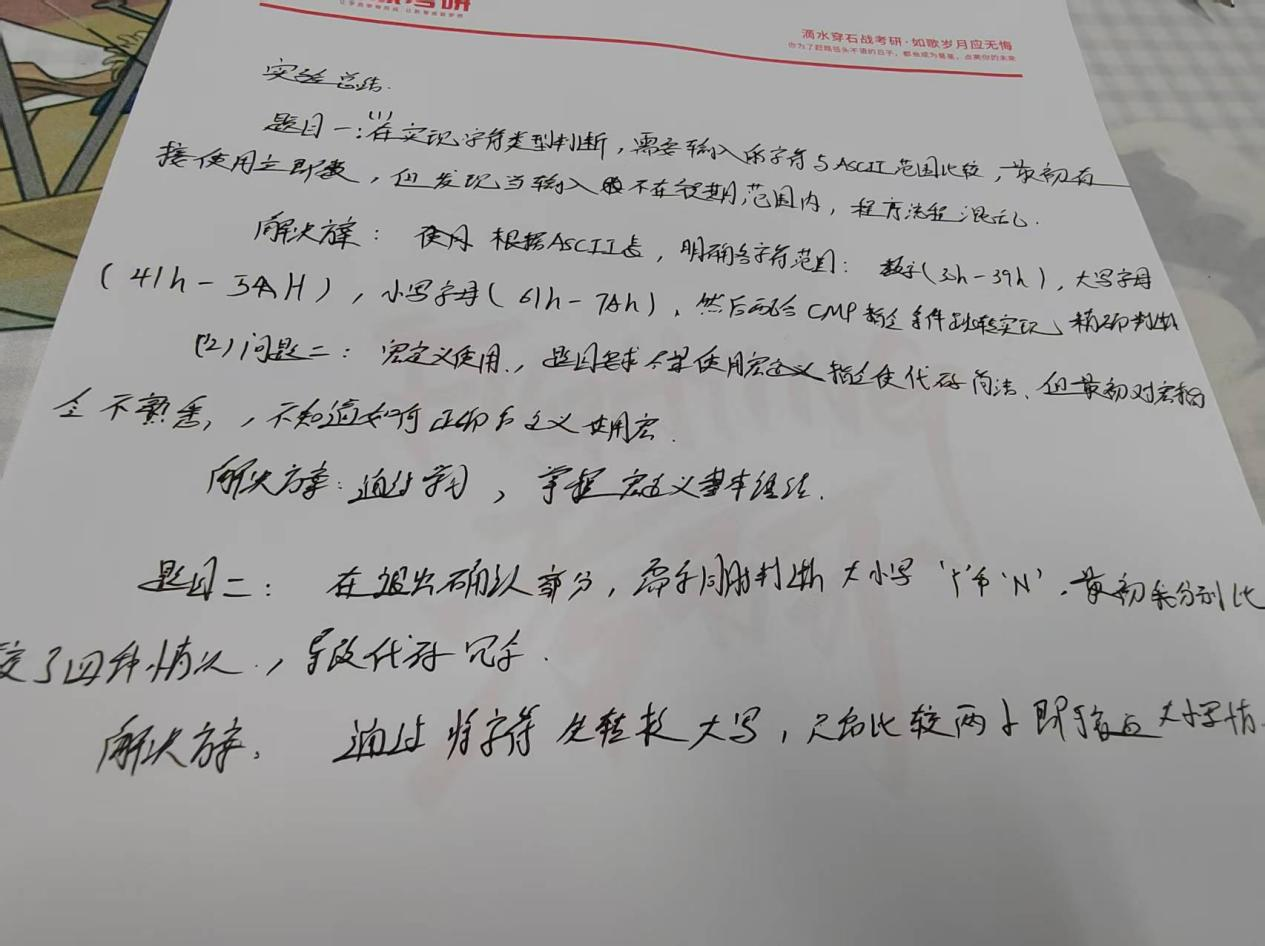 考研
滴水穿石战考研·如歌岁月应无悔
实验总结.
题目一:(1)在实现字符类型判断,需要输入的字符与ASCII范围比较,最初直
接使用立即数,但发现当输入 不在预期范围内,程序流程混乱.
解决方案: 使用 根据ASCII表,明确各字符范围: 数字(3h-39h),大写字母
(41h-5AH),小写字母(61h-7Ah),然后配合CMP指令条件跳转实现精确判断
(2)问题二: 宏定义使用.,题目要求 使用宏定义指令使代码简洁、但最初对宏指
令不熟悉,,不知道如何正确 定义 使用宏.
解决方案:通过学习,掌握宏定义基本语法.
题目二: 在退出确认部分,需要同时判断大小写'Y'和'N',最初 分别比
较了四种情况.,导致代码冗余.
解决方案: 通过将字符先转换大写,只需比较两个即